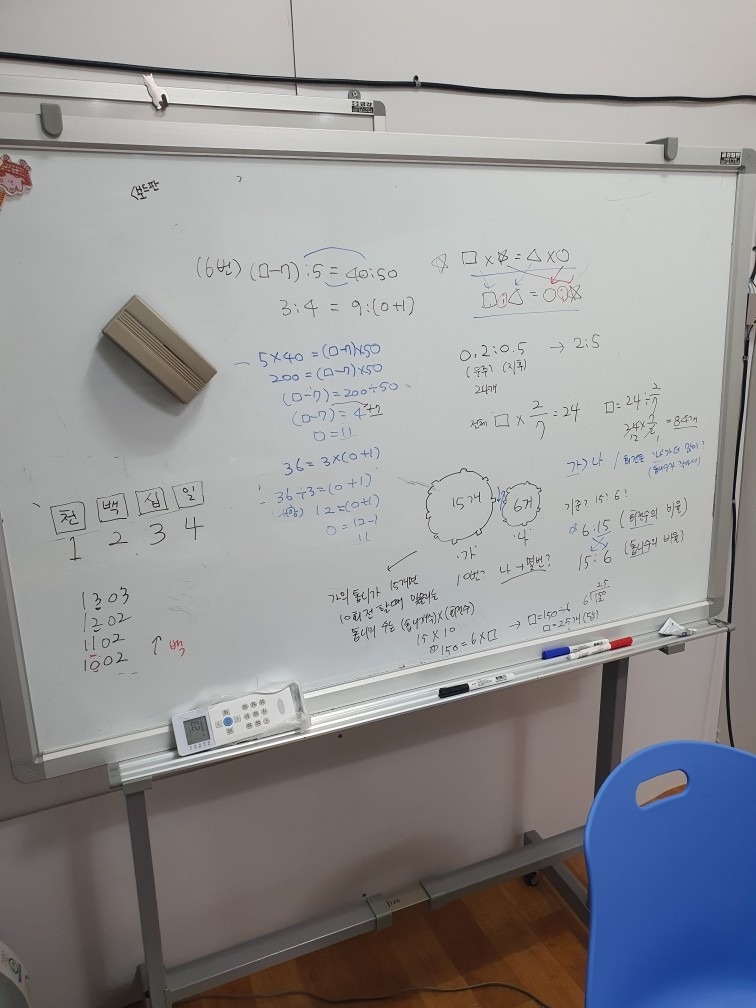 <보드판
(6번) (□-7):5 = 40:50
3:4 = 9:(0+1)
5×40 = (□-7)×50
200 = (□-7)×50
(□-7) = 200÷50
(□-7) = 4 +7
0 = 11
36 = 3×(0+1)
36÷3 = (0+1)
12 = (0+1)
0 = 12-1
11
□ × ☆ = △ × ○
□:△ = ○:☆
0.2:0.5 → 2:5
24개
전체 □ × 2/7 = 24
□ = 24÷2/7
24×7/2 = 84개
가>나
15개
6개
가
나
10번?
나→몇번?
기준? 15:6?
6:15 (회전수의 비율)
15:6 (톱니수의 비율)
가의 톱니가 15개면
10회전 할때
톱니의 수는 (톱니개수)×(회전수)
15×10
150 = 6×□
→ □=150÷6
□=25개(답)
25
6 150
천 백 십 일
1 2 3 4
1303
1202
1102
1002
↑ 백